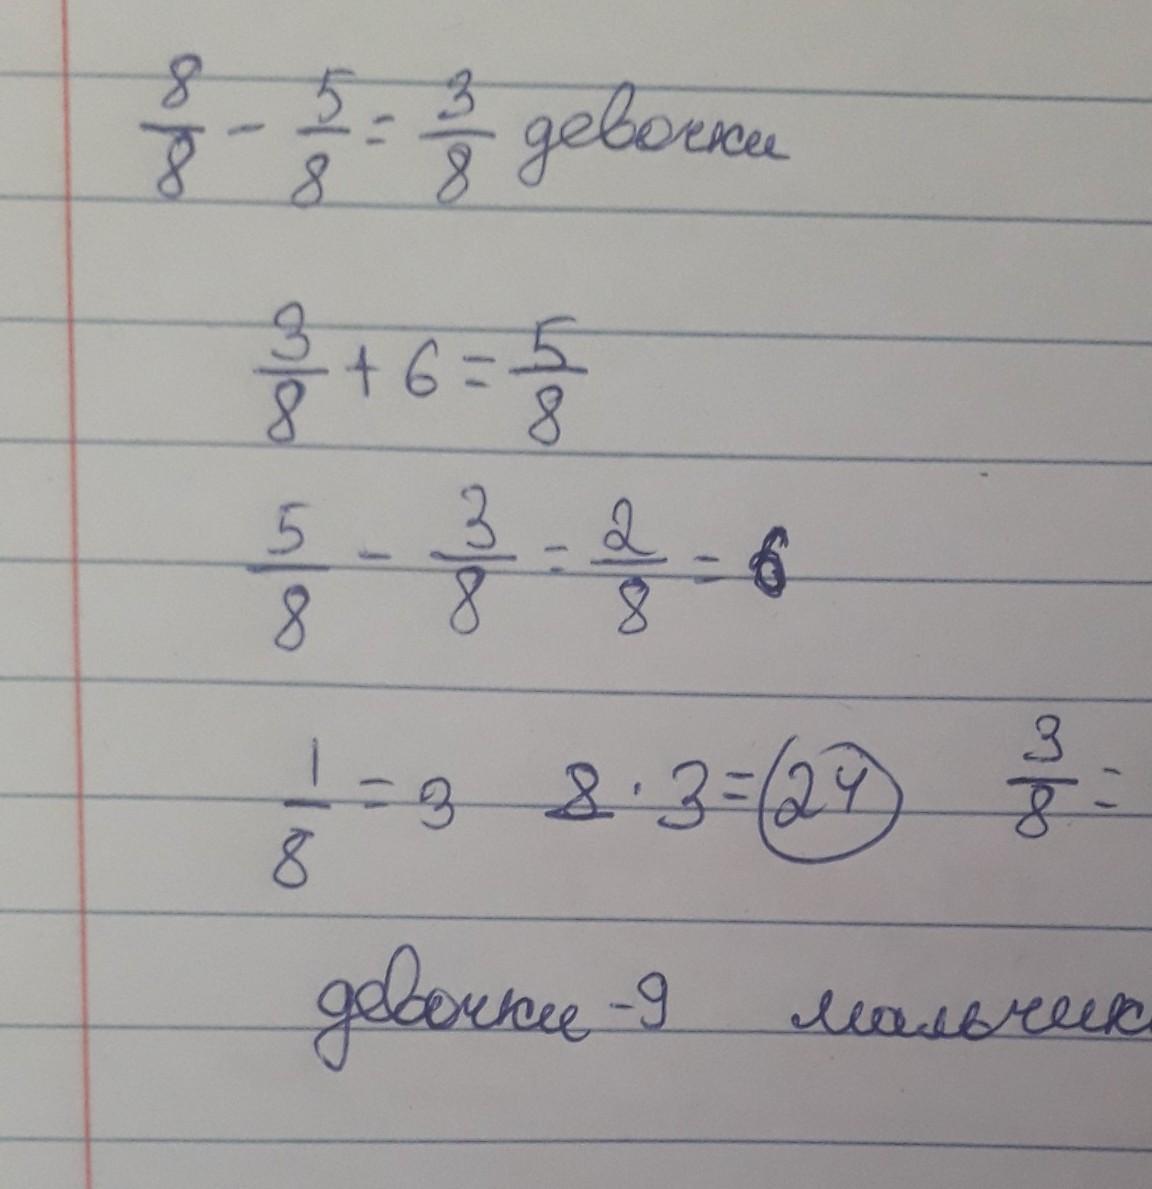 8/8 - 5/8 = 3/8 девочки
3/8 + 6 = 5/8
5/8 - 3/8 = 2/8 = 6
1/8 = 3 8 · 3 = 24 3/8 =
девочки - 9 мальчик